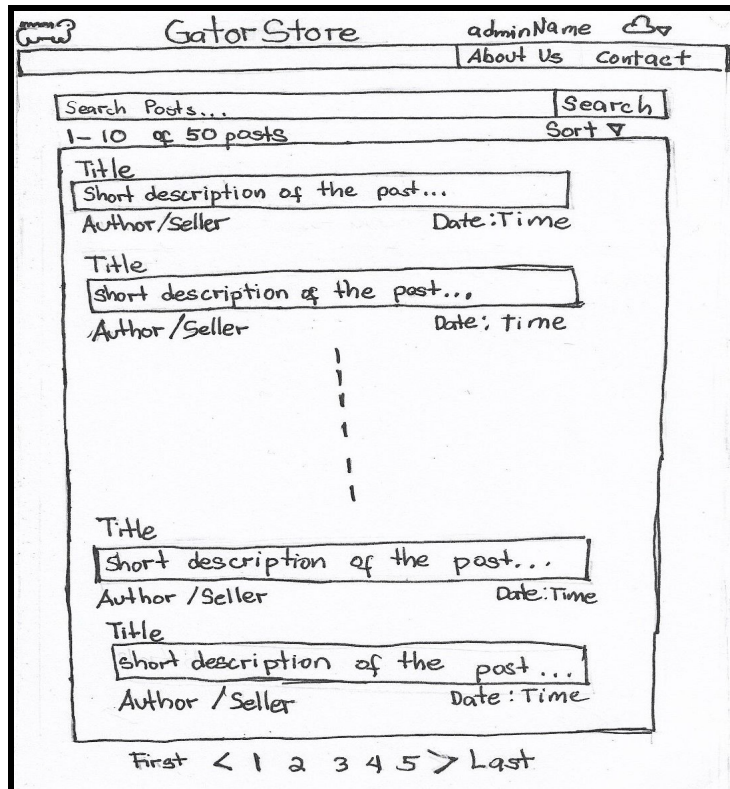 GatorStore adminName
About Us Contact
Search Posts... Search
1-10 of 50 posts Sort
Title
Short description of the post...
Author/Seller Date:Time
Title
short description of the post...
Author/Seller Date: Time
Title
short description of the post...
Author/Seller Date:Time
Title
short description of the post...
Author/Seller Date:Time
First < 1 2 3 4 5 > Last